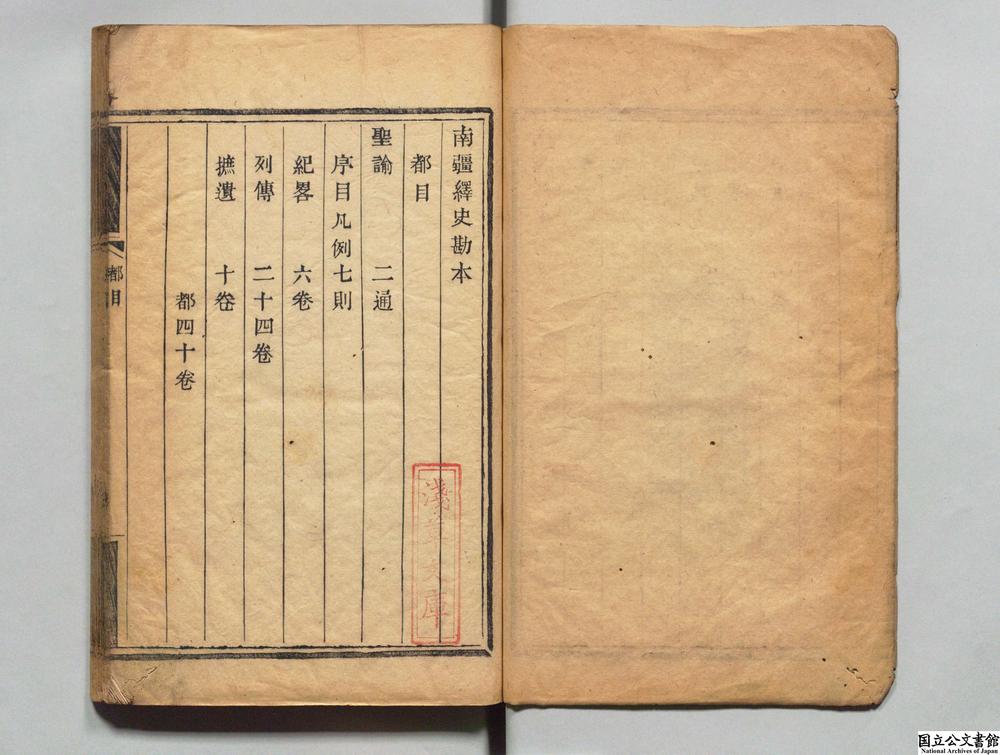 南疆繹史勘本
都目
聖諭 二通
序目凡例七則
紀畧 六卷
列傳 二十四卷
摭遺 十卷
都四十卷
都目
淺草文庫
国立公文書館
National Archives of Japan